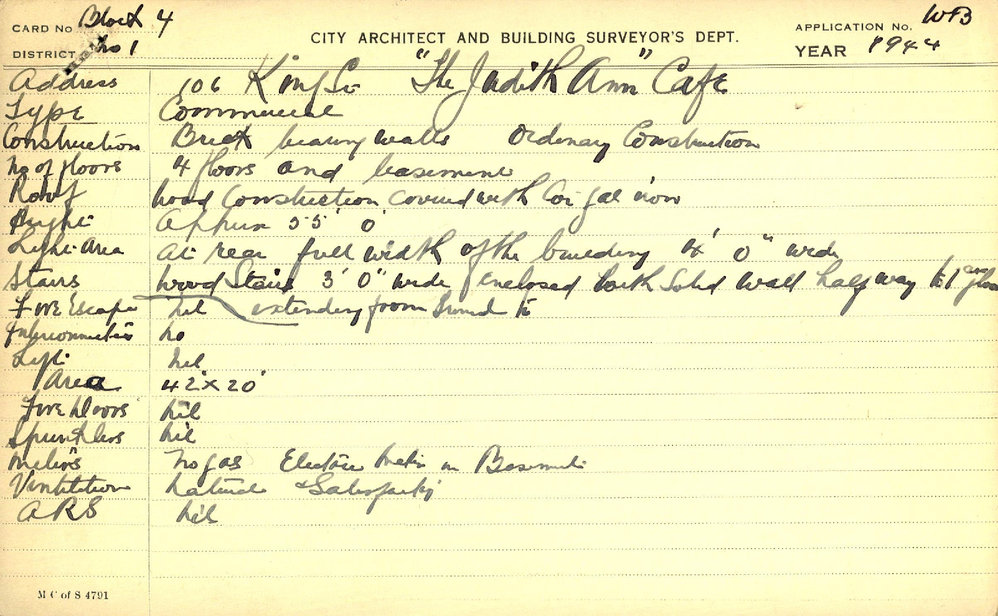 CARD No Block 4
DISTRICT No 1
CITY ARCHITECT AND BUILDING SURVEYOR'S DEPT.
APPLICATION No. WFB
YEAR 1944
Address 106 King St "The Judith Ann" Cafe
Type Commercial
Construction Brick bearing walls Ordinary Construction
No of floors 4 floors and basement
Roof Wood Construction covered with Cor gal iron
Height Approx 55' 0"
Light Area At rear full width of the building 4' 0" wide
Stairs Wood Stairs 3' 0" wide enclosed with Solid Wall half way to 1st floor
Fire Escape nil extending from Ground to
Interconnection no
Lift nil
Area 42' x 20'
Fire Doors nil
Sprinklers nil
Meters No gas Electric Meter in Basement
Ventilation Natural & Satisfactory
ARS nil
M C of S 4791